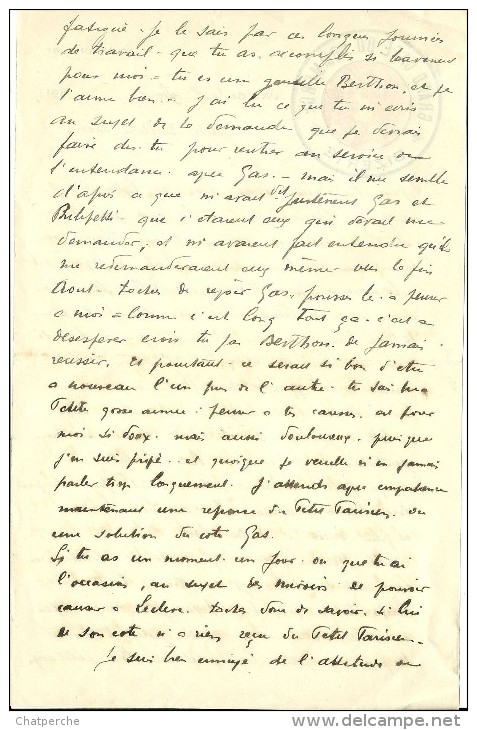 fatigué. je le sais par ces longues journées
de travail - que tu as accomplis si
pour moi - tu es une Berthon. et je
t'aime bien - J'ai lu ce que tu m'ecris
au sujet de la demande que je devrais
faire dis tu pour rentrer au service de
l'entendance avec Gas. - mais il me semble
d'après ce que m'avait dit justement Gas et
que c'etaient eux qui devait me
demander, et m'avaient fait entendre qu'ils
me redemanderaient eux même vers la fin
Aout. taches de revoir Gas. pousses le a penser
a moi - comme c'est long tout ça. c'est a
desesperer crois tu pas Berthon. de jamais
reussir. et pourtant ce serait si bon d'etre
a nouveau l'un pres de l'autre. tu sais ma
Petite gosse aimée. penser a tes caresses, est pour
moi si doux mais aussi douloureux. puisque
j'en suis privé. et quoique je veuille n'en jamais
parler trop longuement. J'attends avec impatience
maintenant une reponse du Petit Parisien. ou
une solution du coté Gas.
Si tu as un moment un jour. ou que tu ai
l'occasion, au sujet des miroirs de pouvoir
causer a Leclerc. taches donc de savoir. si lui
de son coté n'a rien reçu du Petit Parisien -
Je suis bien ennuyé de l'attitude
Chatperche
www.delcampe.net